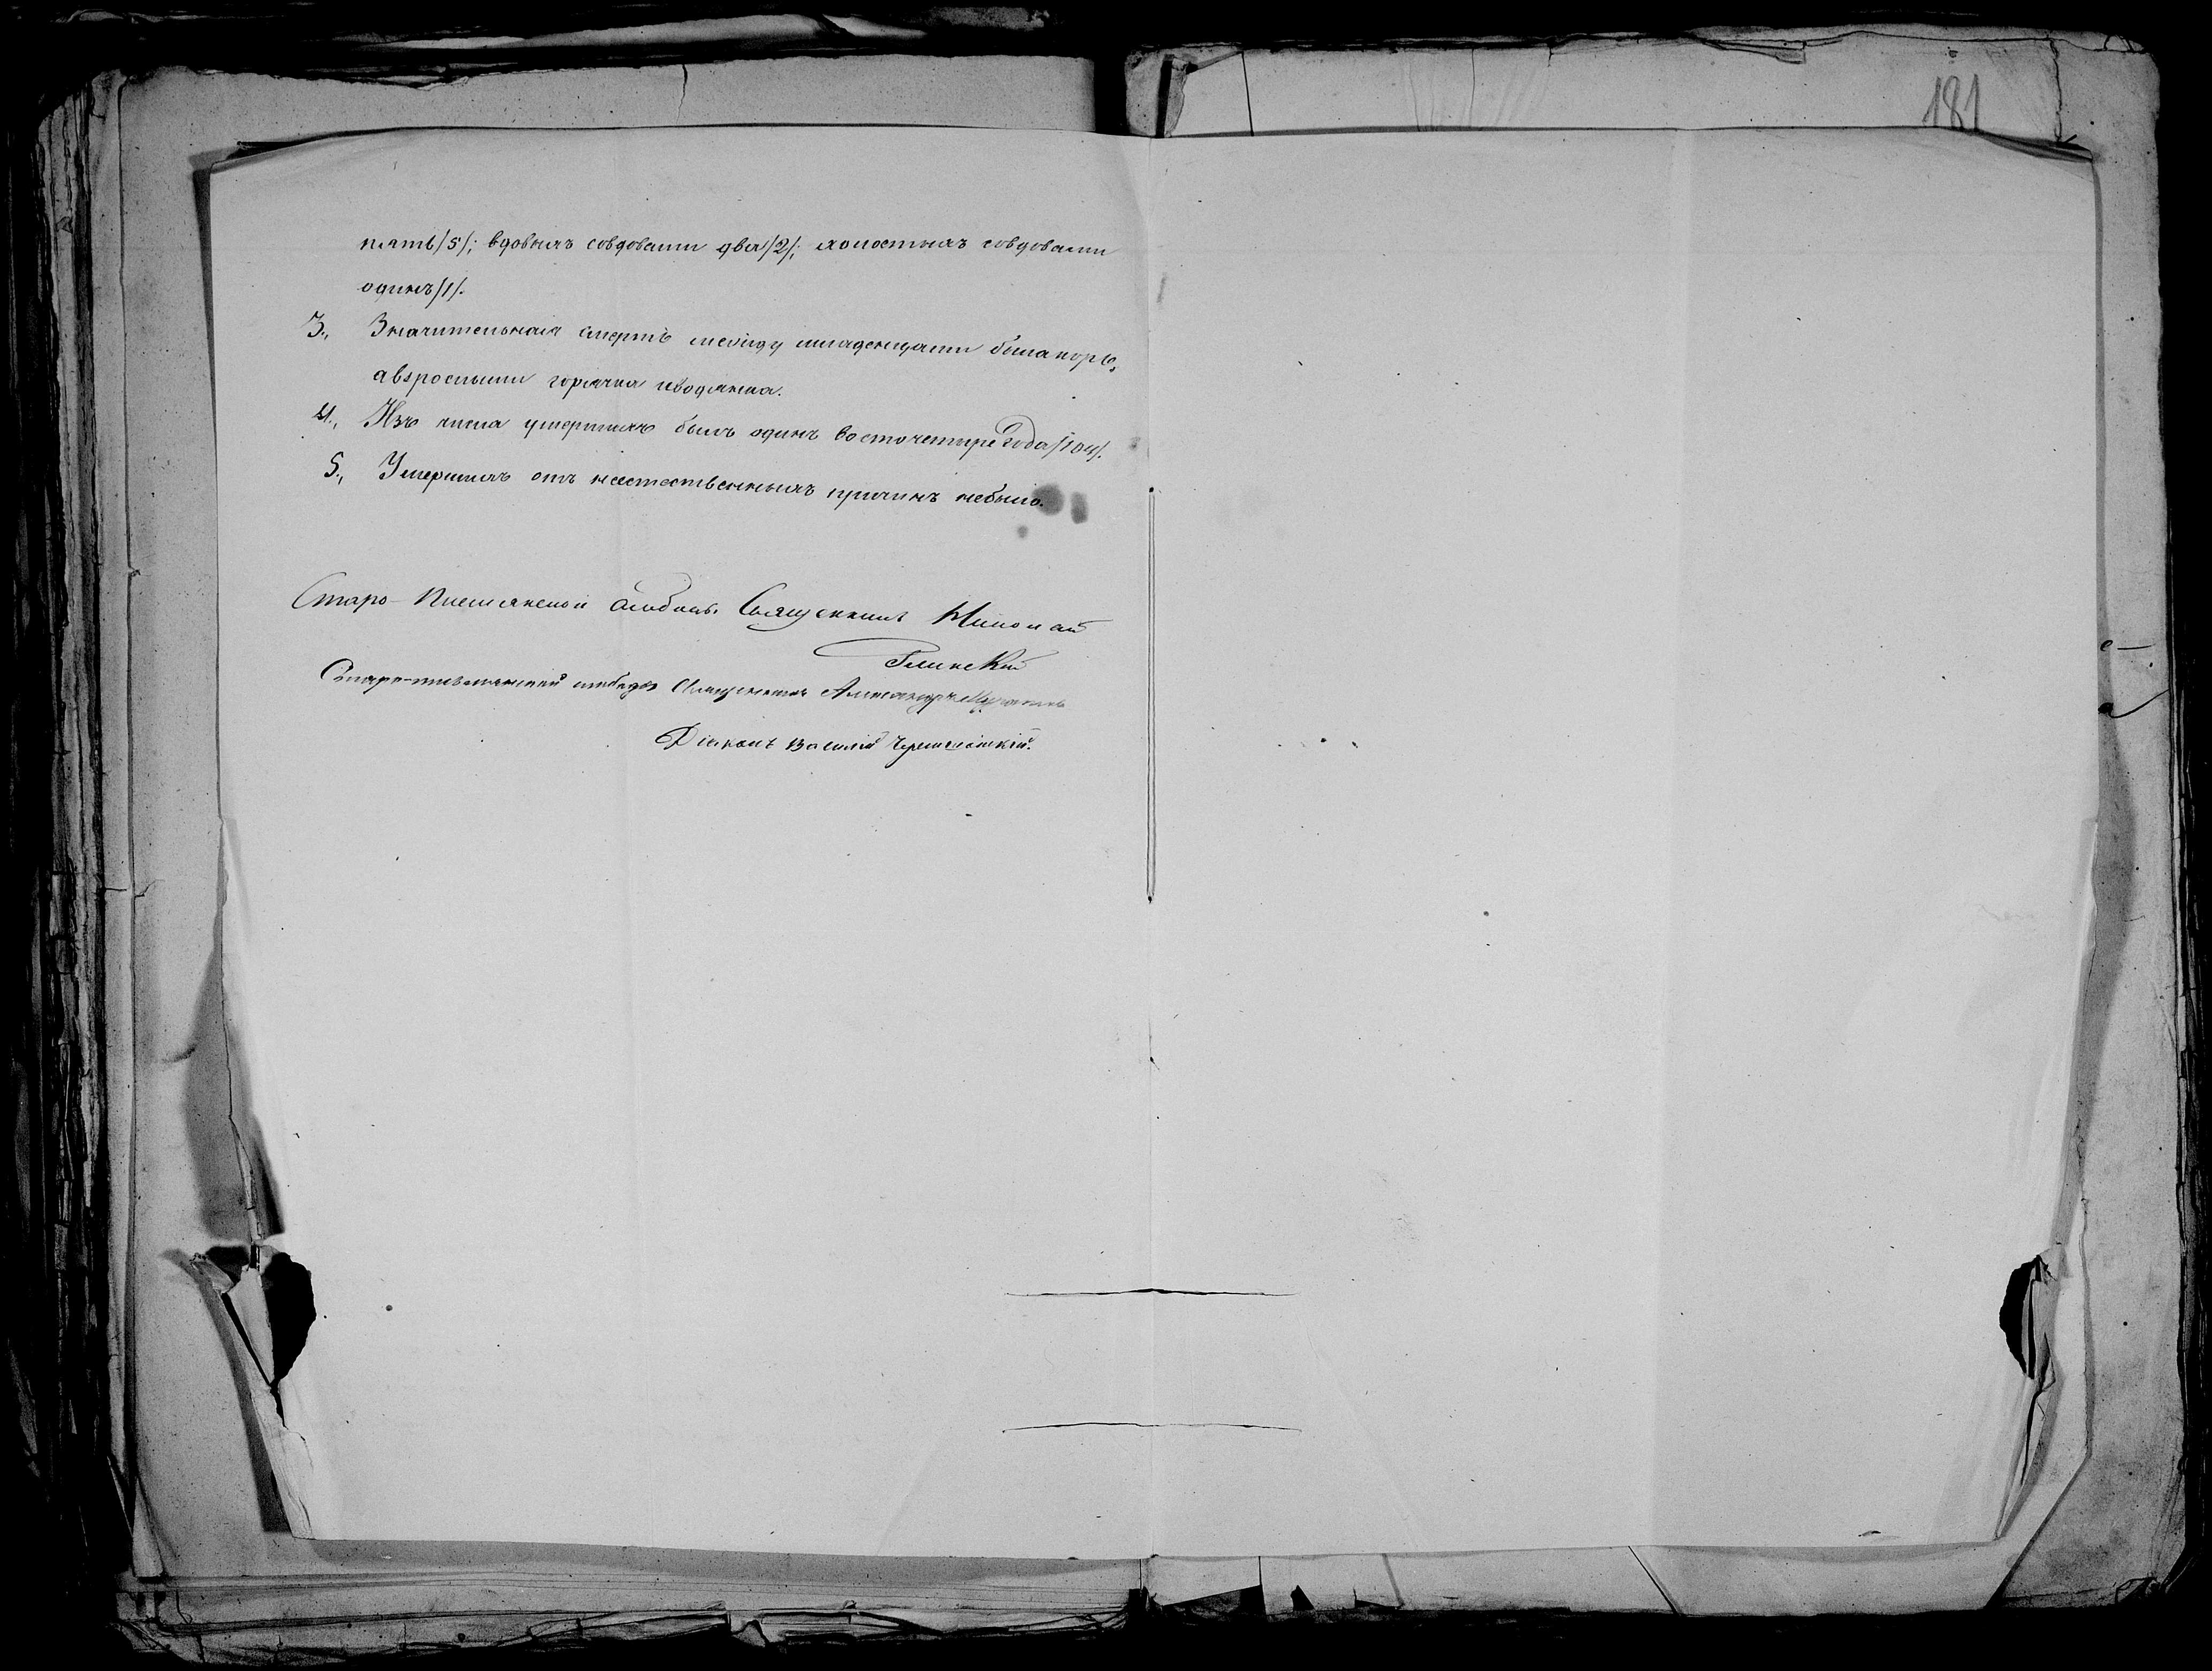 181
пять/5/; вдовыхъ совдовами два/2/; холостыхъ совдовами
одинъ/1/.
3., Значительная смерть между младенцами была корь,
авзрослыми горячка иводянка.
4., Изъ числа умершихъ былъ одинъ во сто четыре года/104/.
5., Умершихъ отъ неестественныхъ причинъ небыло.
Старо- Священникъ Николай
Глинскій
слободы Священникъ Александръ
Діаконъ Василій